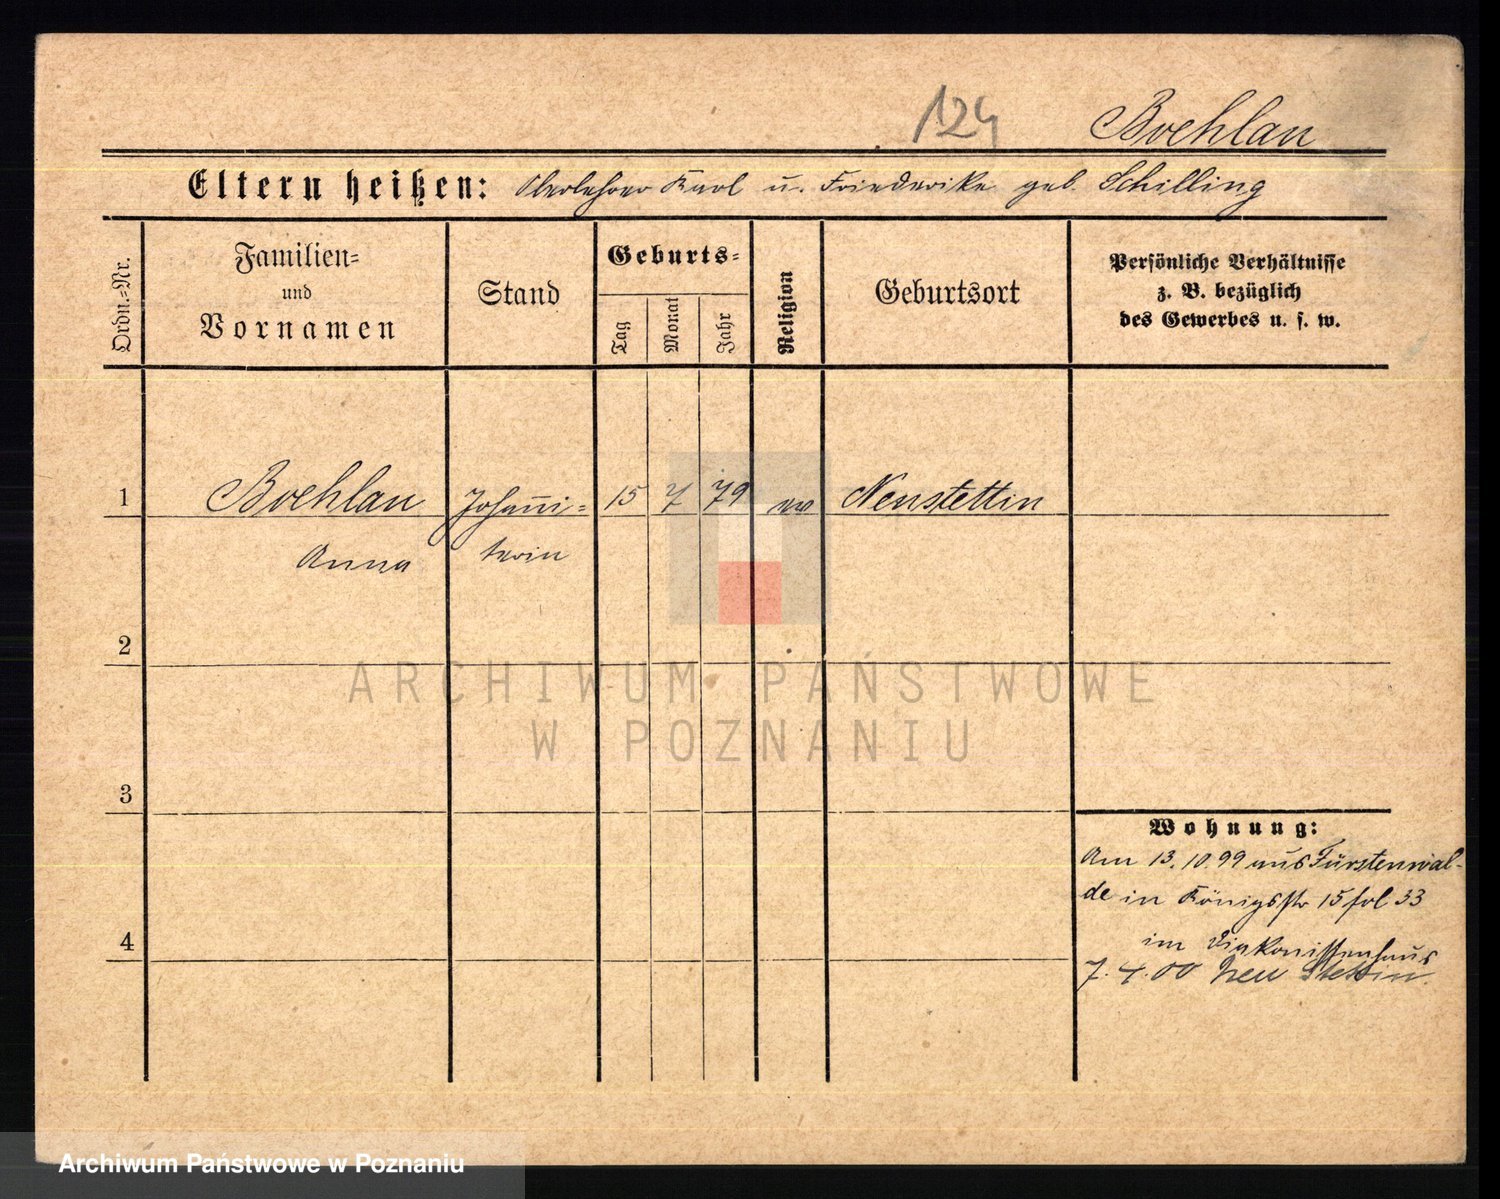 124 Boehlau
Eltern heißen: Oberlehrer Karl u. Friederike geb. Schilling
Ordn.-Nr.
Familien-
und
Vornamen
Stand
Geburts-
Tag
Monat
Jahr
Religion
Geburtsort
Persönliche Verhältnisse
z. B. bezüglich
des Gewerbes u. s. w.
1 Boehlau Johanni- 15 7 79 ev Neustettin
Anna terin
2
3
4
Wohnung:
Am 13.10.99 aus Fürstenwal-
de in Königsstr 15 fol 33
im Diakonissenhaus
7.4.00 Neu Stettin.
ARCHIWUM PAŃSTWOWE
W POZNANIU
Archiwum Państwowe w Poznaniu